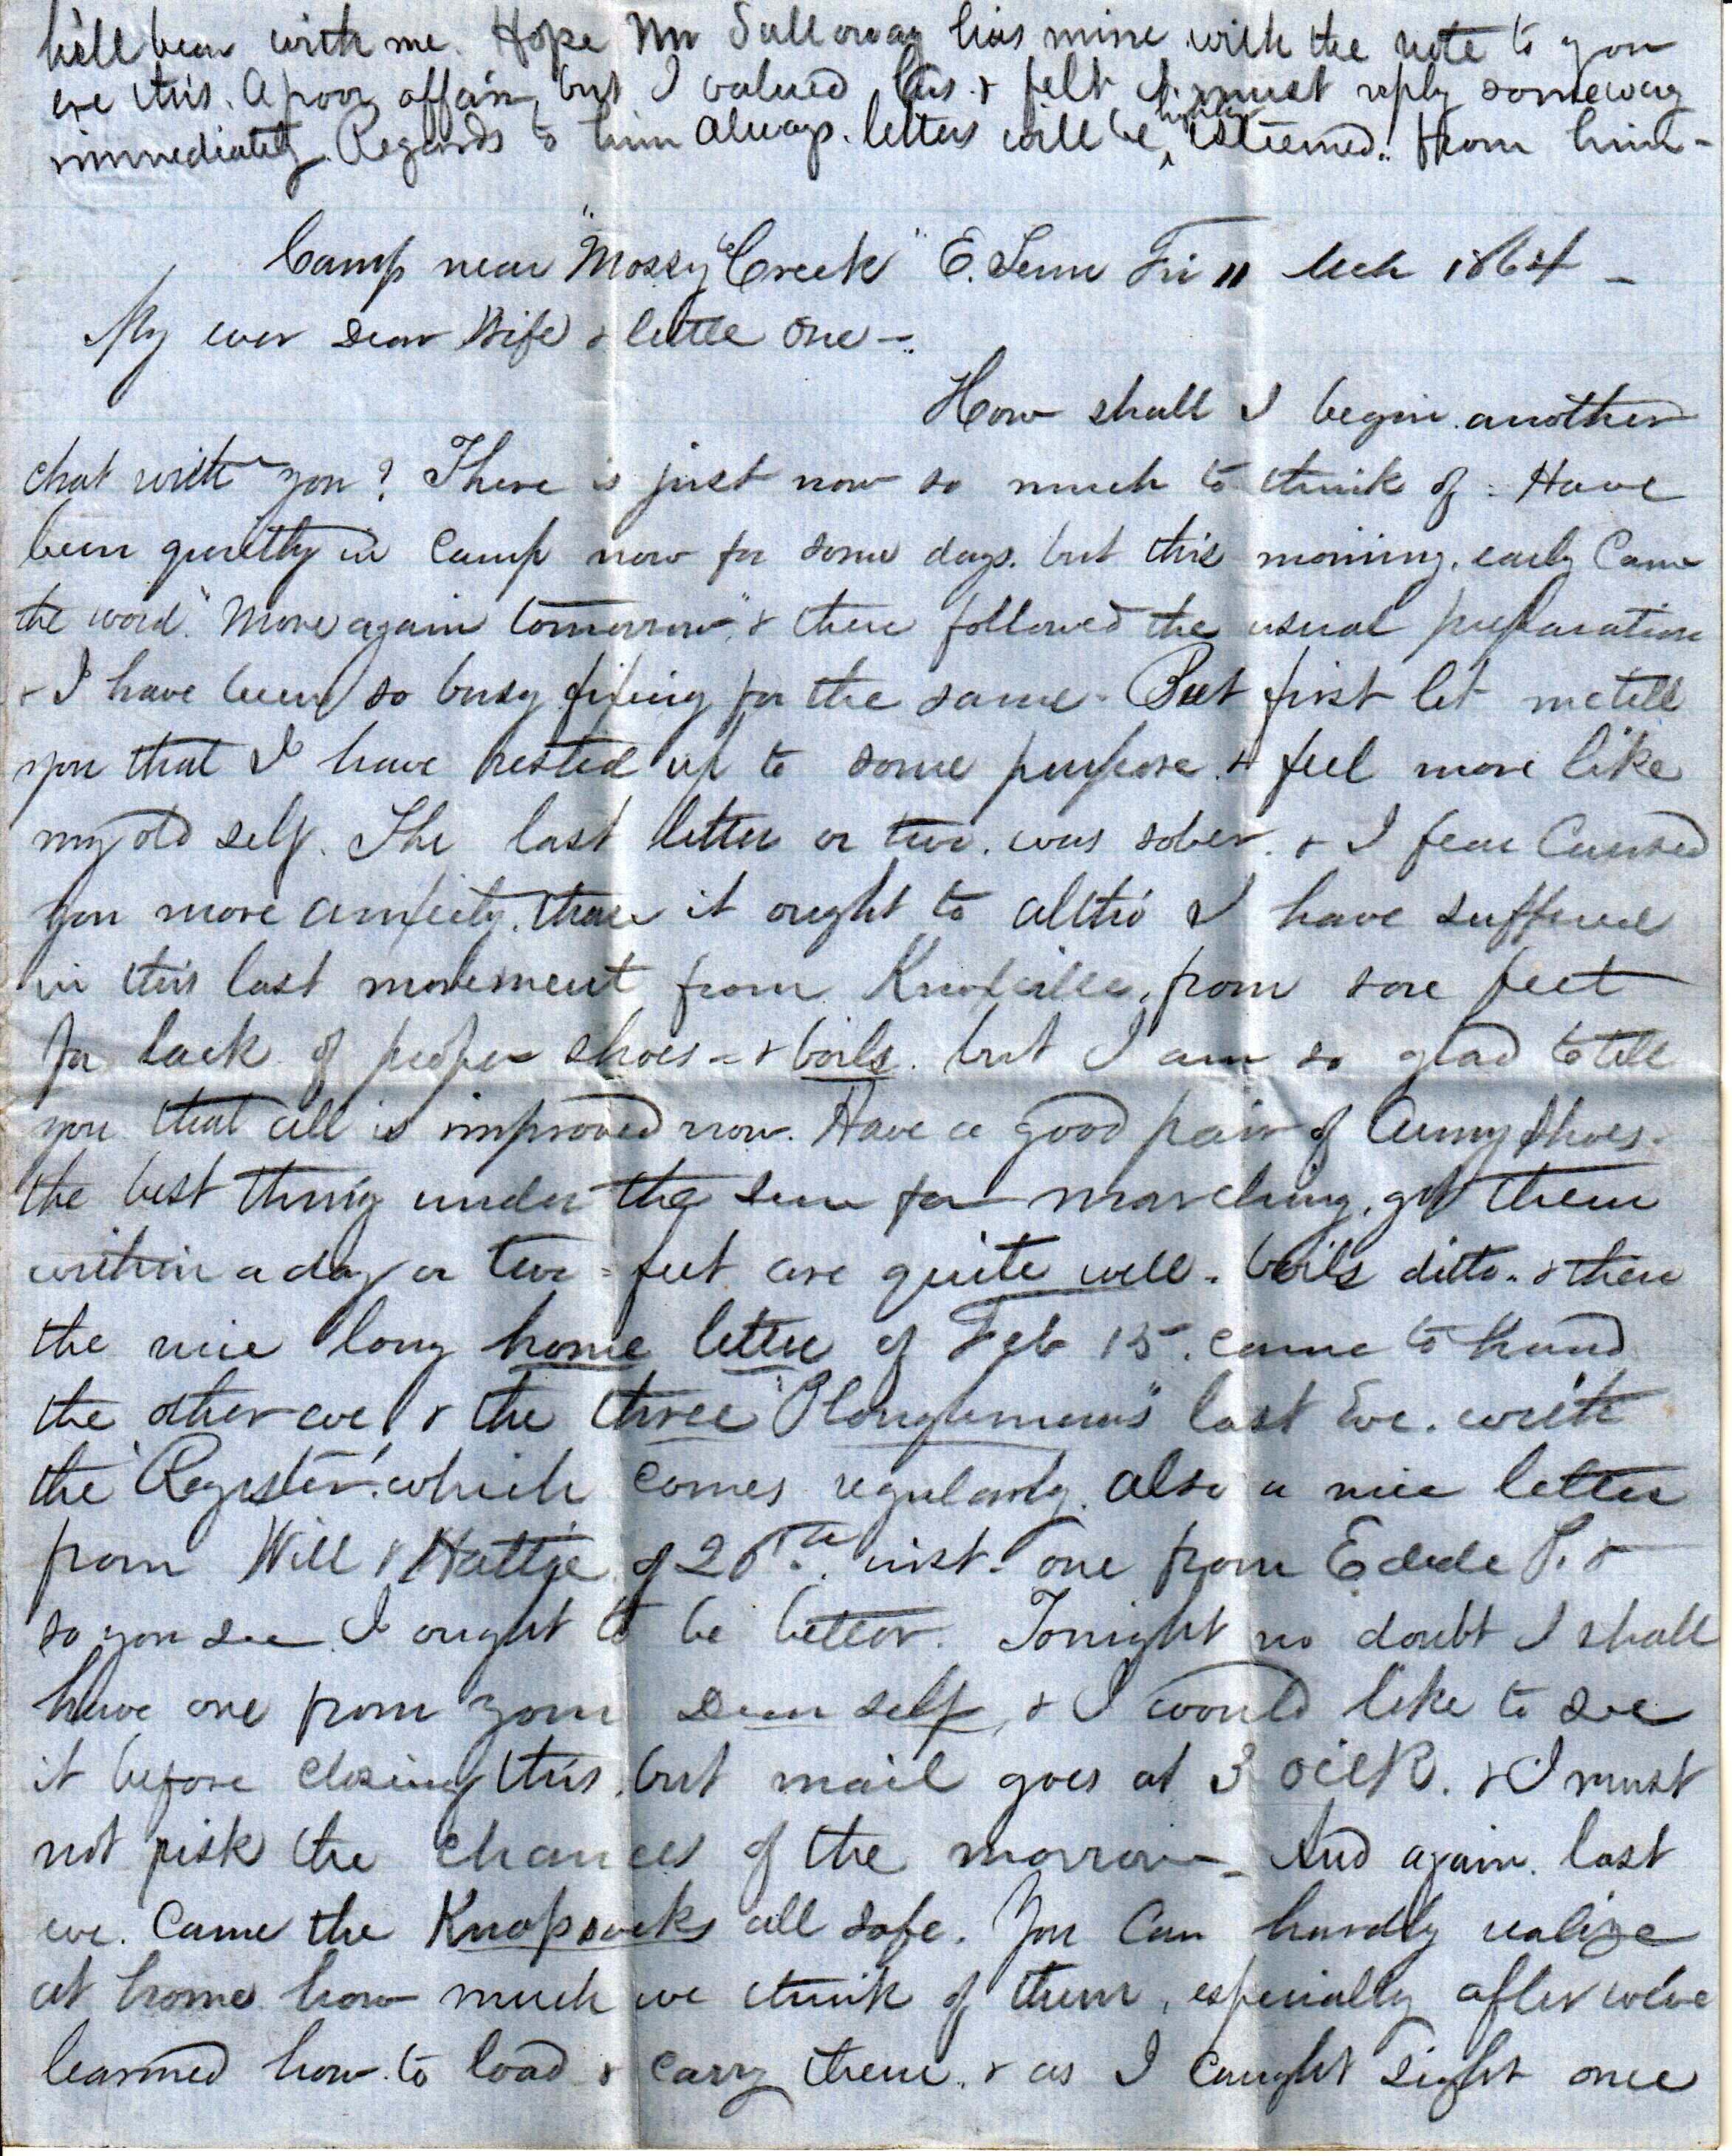 he'll bear with me. Hope Mr Sulloway has mine with the note to you
ere this. A poor affair, but I valued his & felt I must reply someway
immediately. Regards to him always. letters will be highly esteemed. from him -
Camp near "Mossy Creek" E. Tenn Fri 11 Mch 1864 -
My ever Dear Wife & little One -.
How shall I begin another
chat with you? There is just now so much to think of: Have
been quietly in Camp now for some days. but this morning. early Came
the word "Move again tomorrow" & then followed the usual preparation
& I have been so busy fixing for the same - But first let me tell
you that I have rested up to some purpose. & feel more like
my old self. The last letter or two. was sober. & I fear Caused
you more anxiety. than it ought to altho' I have suffered
in this last movement from Knoxville, from sore feet
for lack of proper shoes - & boils. but I am so glad to tell
you that all is improved now. Have a good pair of Army Shoes -
the best thing under the sun for marching. got them
within a day or two - feet are quite well. boils ditto. & then
the nice long home letter of Feb 15. came to hand
the other eve & the three "Ploughmans" last Eve. with
the 'Register' which comes regularly. also a nice letter
from Will & Hattie of inst. one from Edde P. &
so you see I ought to be better. Tonight no doubt I shall
have one from your Dear self, & I would like to see
it before closing this, but mail goes at 3 oclk. & I must
not risk the chances of the morrow - And again. last
eve. Came the Knapsacks all safe. You Can hardly realize
at home how much we think of them, especially after we've
learned how to load & carry them. & as I Caught Sight once